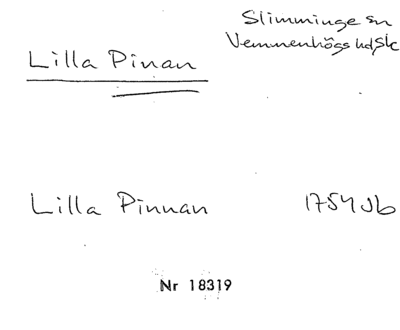 Slimminge sn
Vemmenhögs hd, Sk
Lilla Pinan
Lilla Pinnan 1754 Jb
Nr 18319